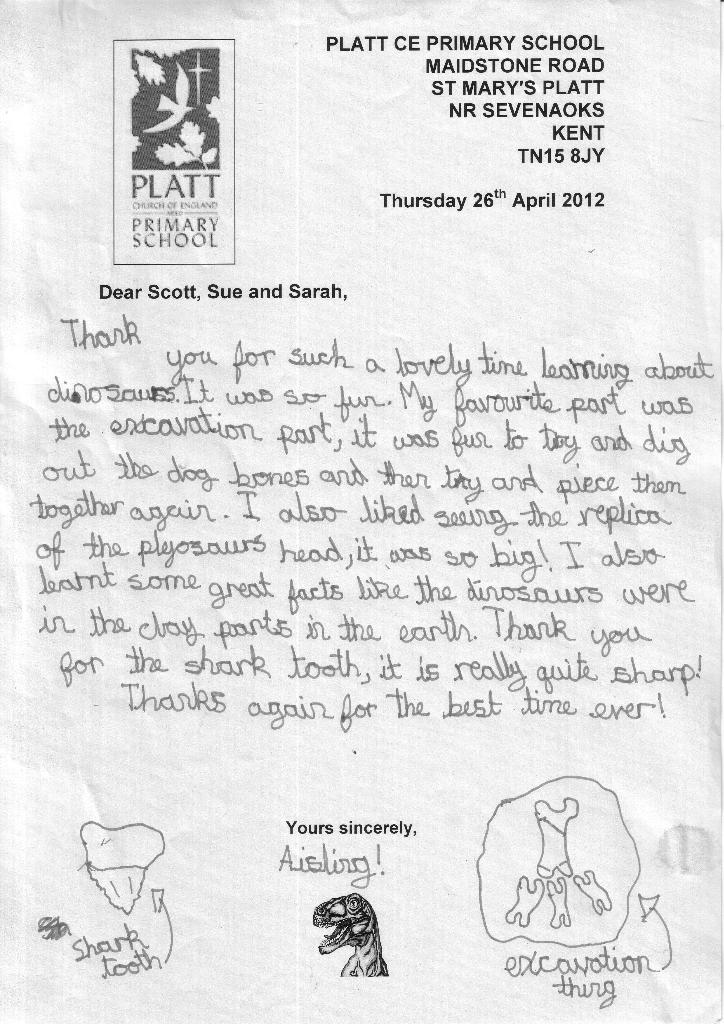 PLATT CE PRIMARY SCHOOL
MAIDSTONE ROAD
ST MARY'S PLATT
NR SEVENAOKS
KENT
TN15 8JY
PLATT
CHURCH OF ENGLAND
PRIMARY
SCHOOL
Thursday 26th April 2012
Dear Scott, Sue and Sarah,
Thank
you for such a lovely time learning about
dinosaurs. It was so fun. My favourite part was
the excavation part, it was fun to try and dig
out the dog bones and then try and piece them
together again. I also liked seeing the replica
of the pleyosaurs head, it was so big! I also
learnt some great facts like the dinosaurs were
in the clay parts in the earth. Thank you
for the shark tooth, it is really quite sharp!
Thanks again for the best time ever!
Yours sincerely,
Aisling!
shark
tooth
excavation
thing